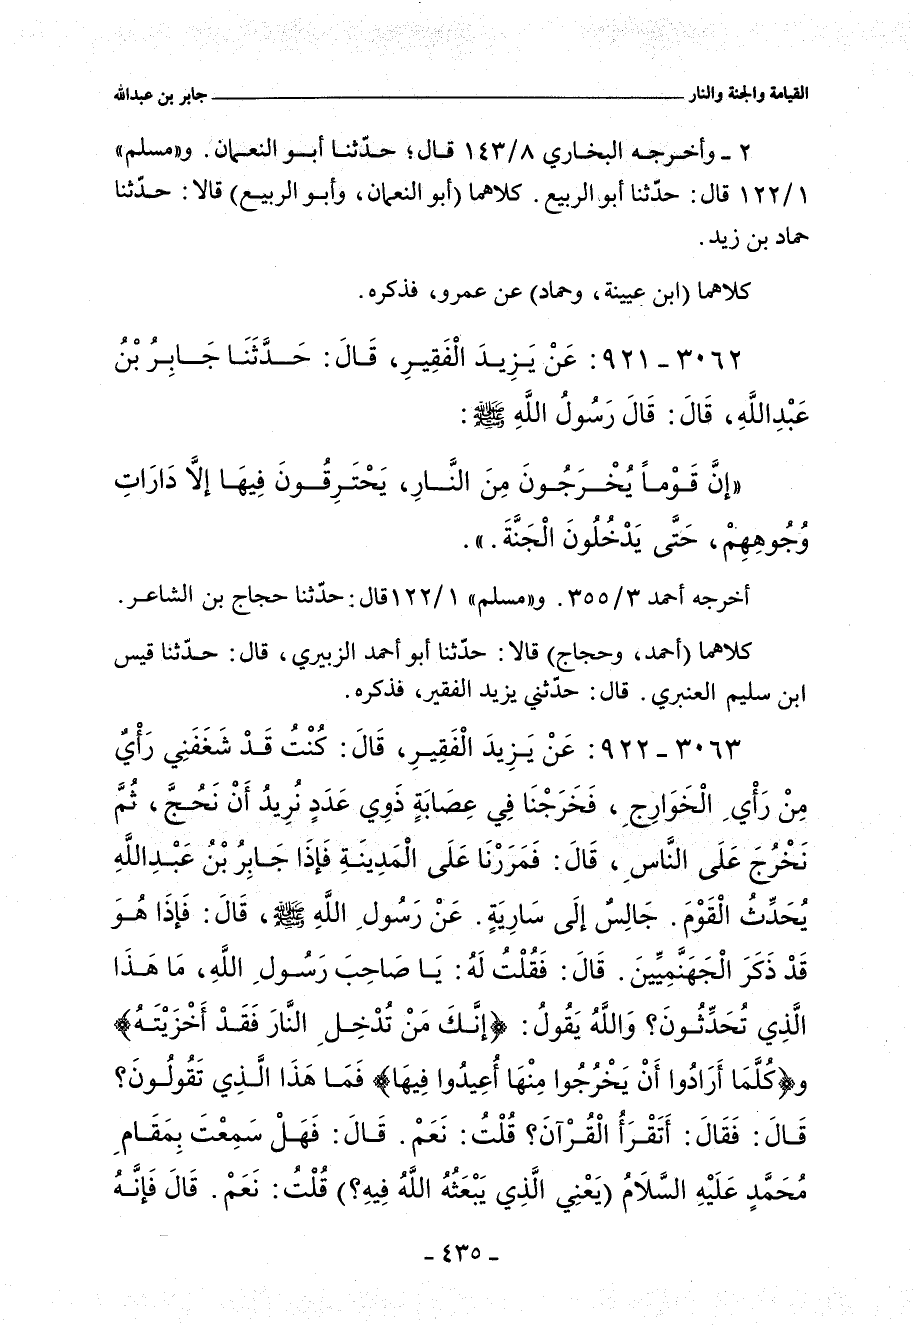 القيامة والجنة والنار ــــــــــــــــــــ جابر بن عبدالله
٢ - وأخرجه البخاري ١٤٣/٨ قال؛ حدّثنا أبو النعمان. و«مسلم»
١٢٢/١ قال: حدّثنا أبو الربيع. كلاهما (أبو النعمان، وأبو الربيع) قالا: حدّثنا
حماد بن زيد.
كلاهما (ابن عيينة، وحماد) عن عمرو، فذكره.
٣٠٦٢ - ٩٢١: عَنْ يَزِيدَ الْفَقِيرِ، قَالَ: حَدَّثَنَا جَابِرُ بْنُ
عَبْدِاللَّهِ، قَالَ: قَالَ رَسُولُ اللَّهِ ﷺ:
«إنَّ قَوْماً يُخْرَجُونَ مِنَ النَّارِ، يَحْتَرِقُونَ فِيهَا إلَّا دَارَاتِ
وُجُوهِهِمْ، حَتَّى يَدْخُلُونَ الْجَنَّةَ.».
أخرجه أحمد ٣٥٥/٣. و«مسلم» ١٢٢/١قال: حدّثنا حجاج بن الشاعر.
كلاهما (أحمد، وحجاج) قالا: حدّثنا أبو أحمد الزبيري، قال: حدّثنا قيس
ابن سليم العنبري. قال: حدّثني يزيد الفقير، فذكره.
٣٠٦٣ - ٩٢٢: عَنْ يَزِيدَ الْفَقِيرِ، قَالَ: كُنْتُ قَدْ شَغَفَنِي رَأْيٌ
مِنْ رَأْيِ الْخَوَارِجِ، فَخَرَجْنَا فِي عِصَابَةٍ ذَوِي عَدَدٍ نُرِيدُ أَنْ نَحُجَّ، ثُمَّ
نَخْرُجَ عَلَى النَّاسِ، قَالَ: فَمَرَرْنَا عَلَى الْمَدِينَةِ فَإذَا جَابِرُ بْنُ عَبْدِاللَّهِ
يُحَدِّثُ الْقَوْمَ. جَالِسٌ إلَى سَارِيَةٍ. عَنْ رَسُولِ اللَّهِ ﷺ، قَالَ: فَإذَا هُوَ
قَدْ ذَكَرَ الْجَهَنَّمِيِّينَ. قَالَ: فَقُلْتُ لَهُ: يَا صَاحِبَ رَسُولِ اللَّهِ، مَا هَذَا
الَّذِي تُحَدِّثُونَ؟ وَاللَّهُ يَقُولُ: ﴿إنَّكَ مَنْ تُدْخِلِ النَّارَ فَقَدْ أَخْزَيْتَهُ﴾
و﴿كُلَّمَا أَرَادُوا أَنْ يَخْرُجُوا مِنْهَا أُعِيدُوا فِيهَا﴾ فَمَا هَذَا الَّذِي تَقُولُونَ؟
قَالَ: فَقَالَ: أَتَقْرَأُ الْقُرْآنَ؟ قُلْتُ: نَعَمْ. قَالَ: فَهَلْ سَمِعْتَ بِمَقَامِ
مُحَمَّدٍ عَلَيْهِ السَّلَامُ (يَعْنِي الَّذِي يَبْعَثُهُ اللَّهُ فِيهِ؟) قُلْتُ: نَعَمْ. قَالَ فَإنَّهُ
- ٤٣٥ -